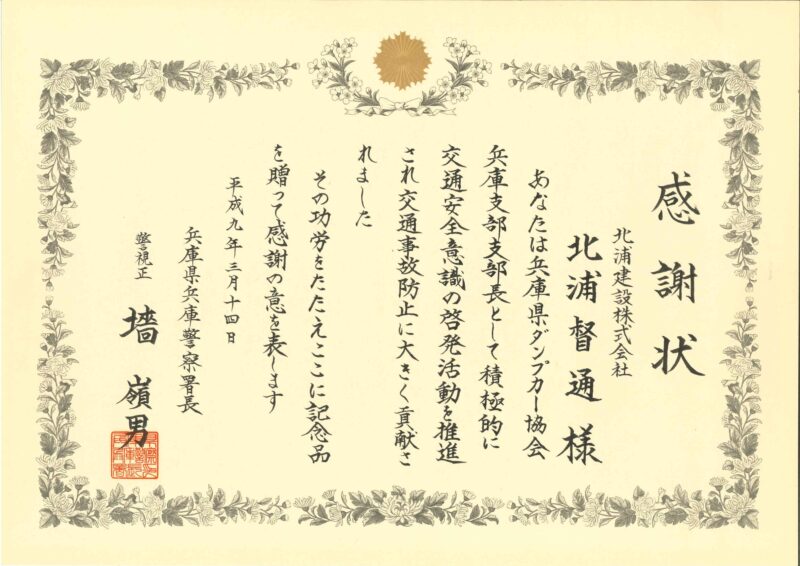 感謝状
北浦建設株式会社
北浦督通様
あなたは兵庫県ダンプカー協会
兵庫支部支部長として積極的に
交通安全意識の啓発活動を推進
され交通事故防止に大きく貢献さ
れました
その功労をたたえここに記念品
を贈って感謝の意を表します
平成九年三月十四日
兵庫県兵庫警察署長
警視正 墻嶺男